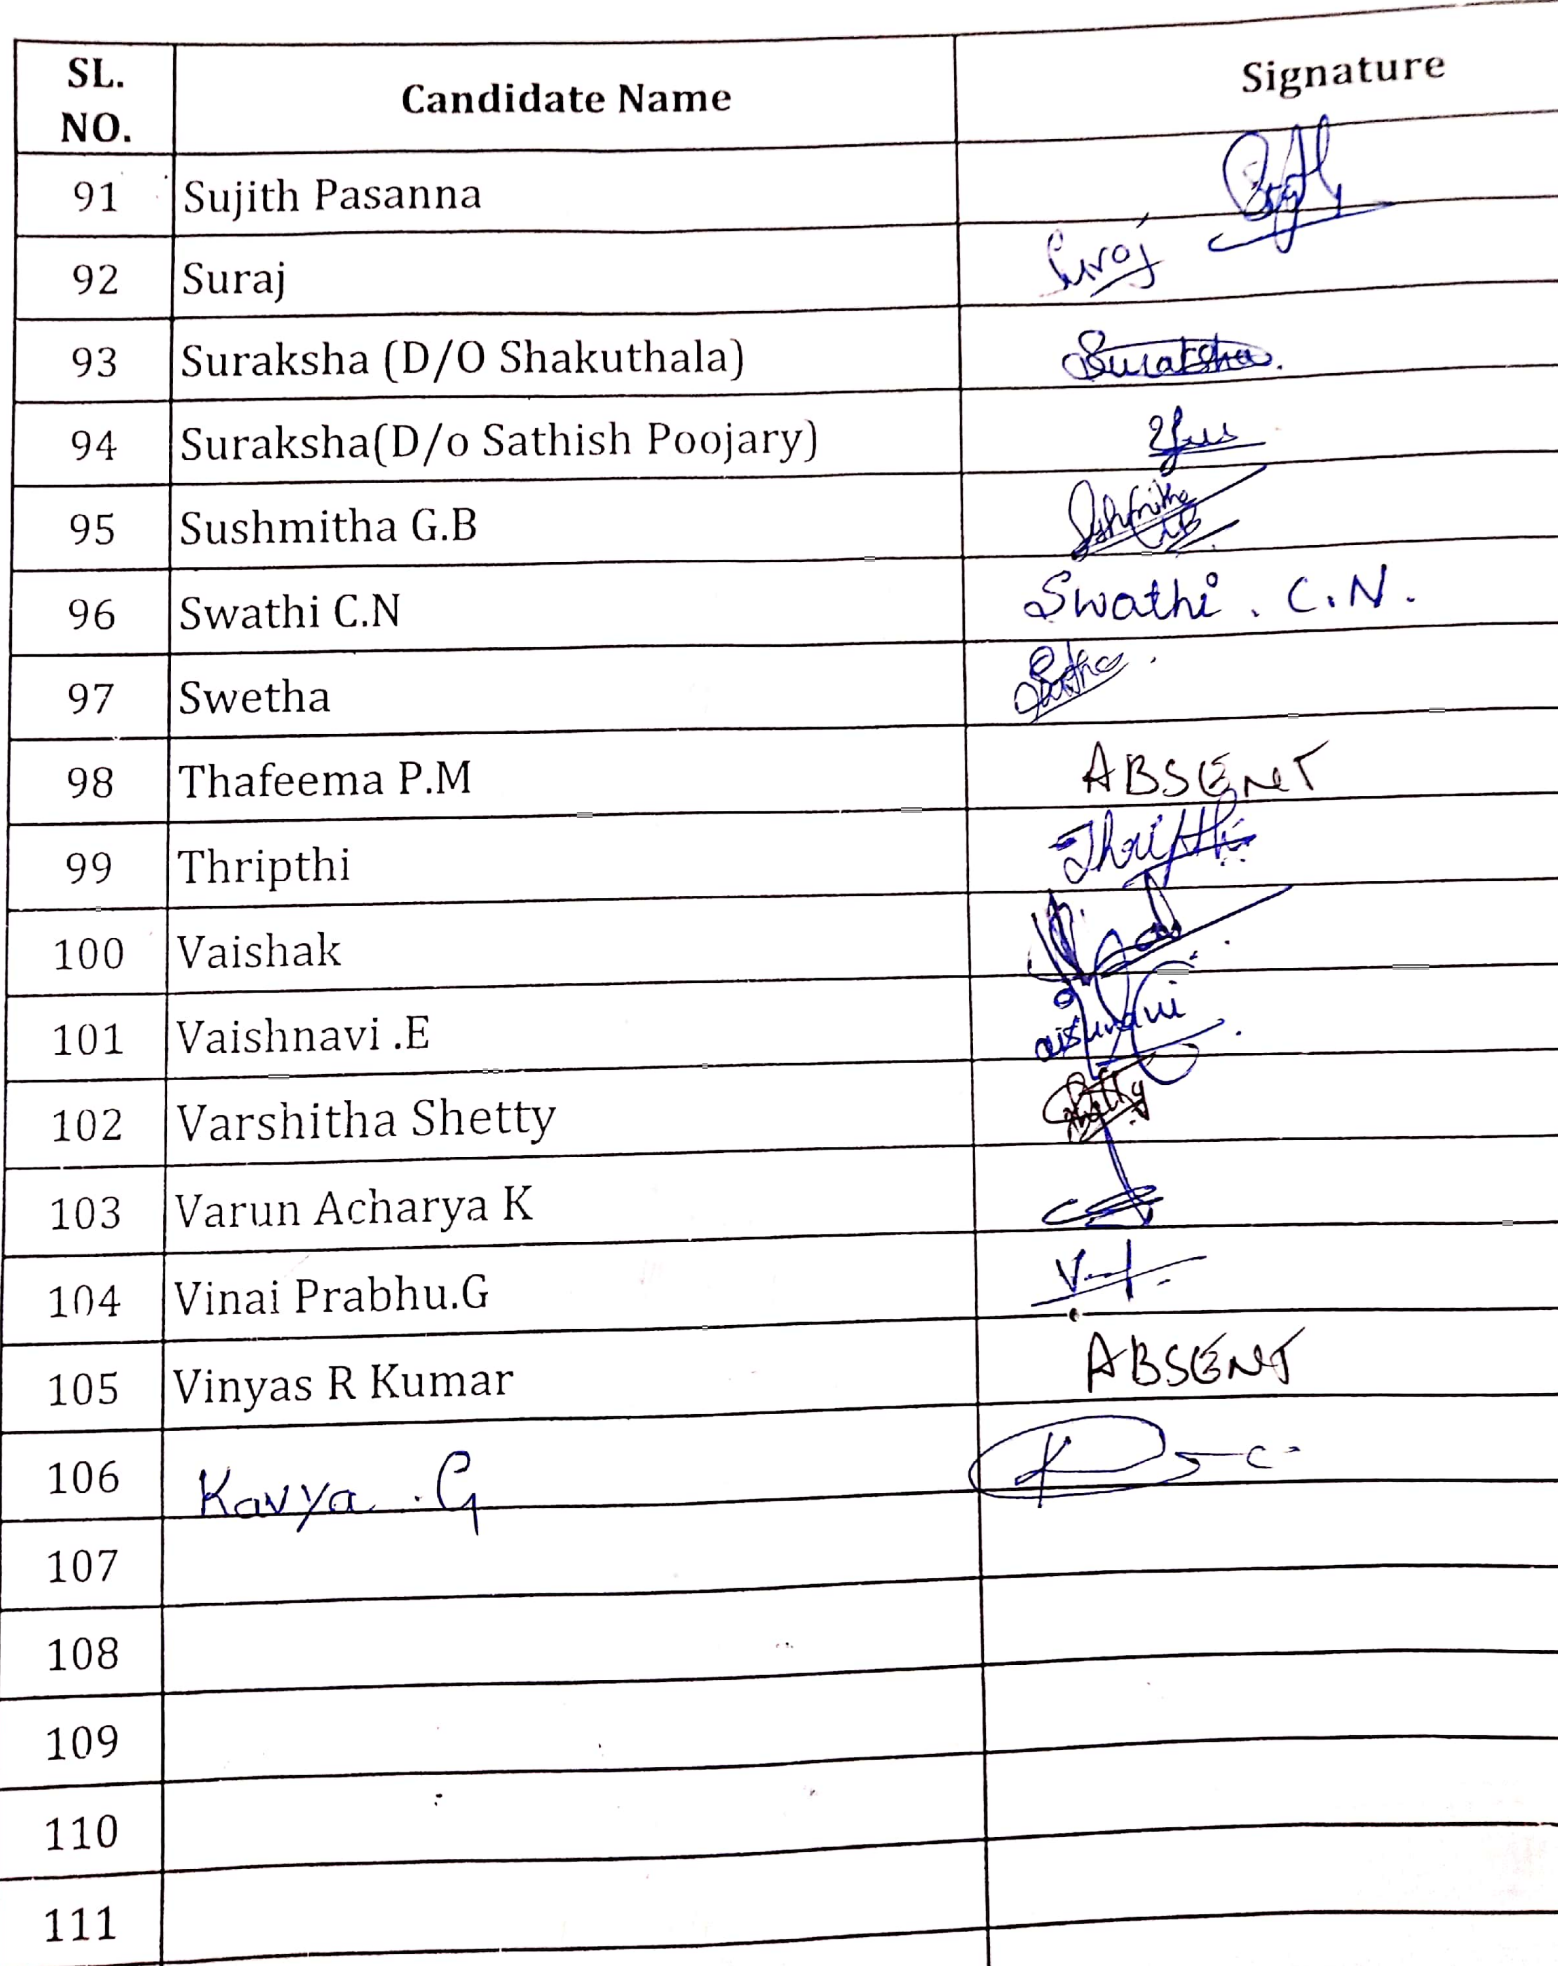 SL. NO. Candidate Name Signature
91 Sujith Pasanna
92 Suraj Suraj
93 Suraksha (D/O Shakuthala) Suraksha.
94 Suraksha(D/o Sathish Poojary)
95 Sushmitha G.B
96 Swathi C.N Swathi . C.N.
97 Swetha
98 Thafeema P.M ABSENT
99 Thripthi Thripthi
100 Vaishak
101 Vaishnavi .E
102 Varshitha Shetty
103 Varun Acharya K
104 Vinai Prabhu.G
105 Vinyas R Kumar ABSENT
106 Kavya .G
107
108
109
110
111